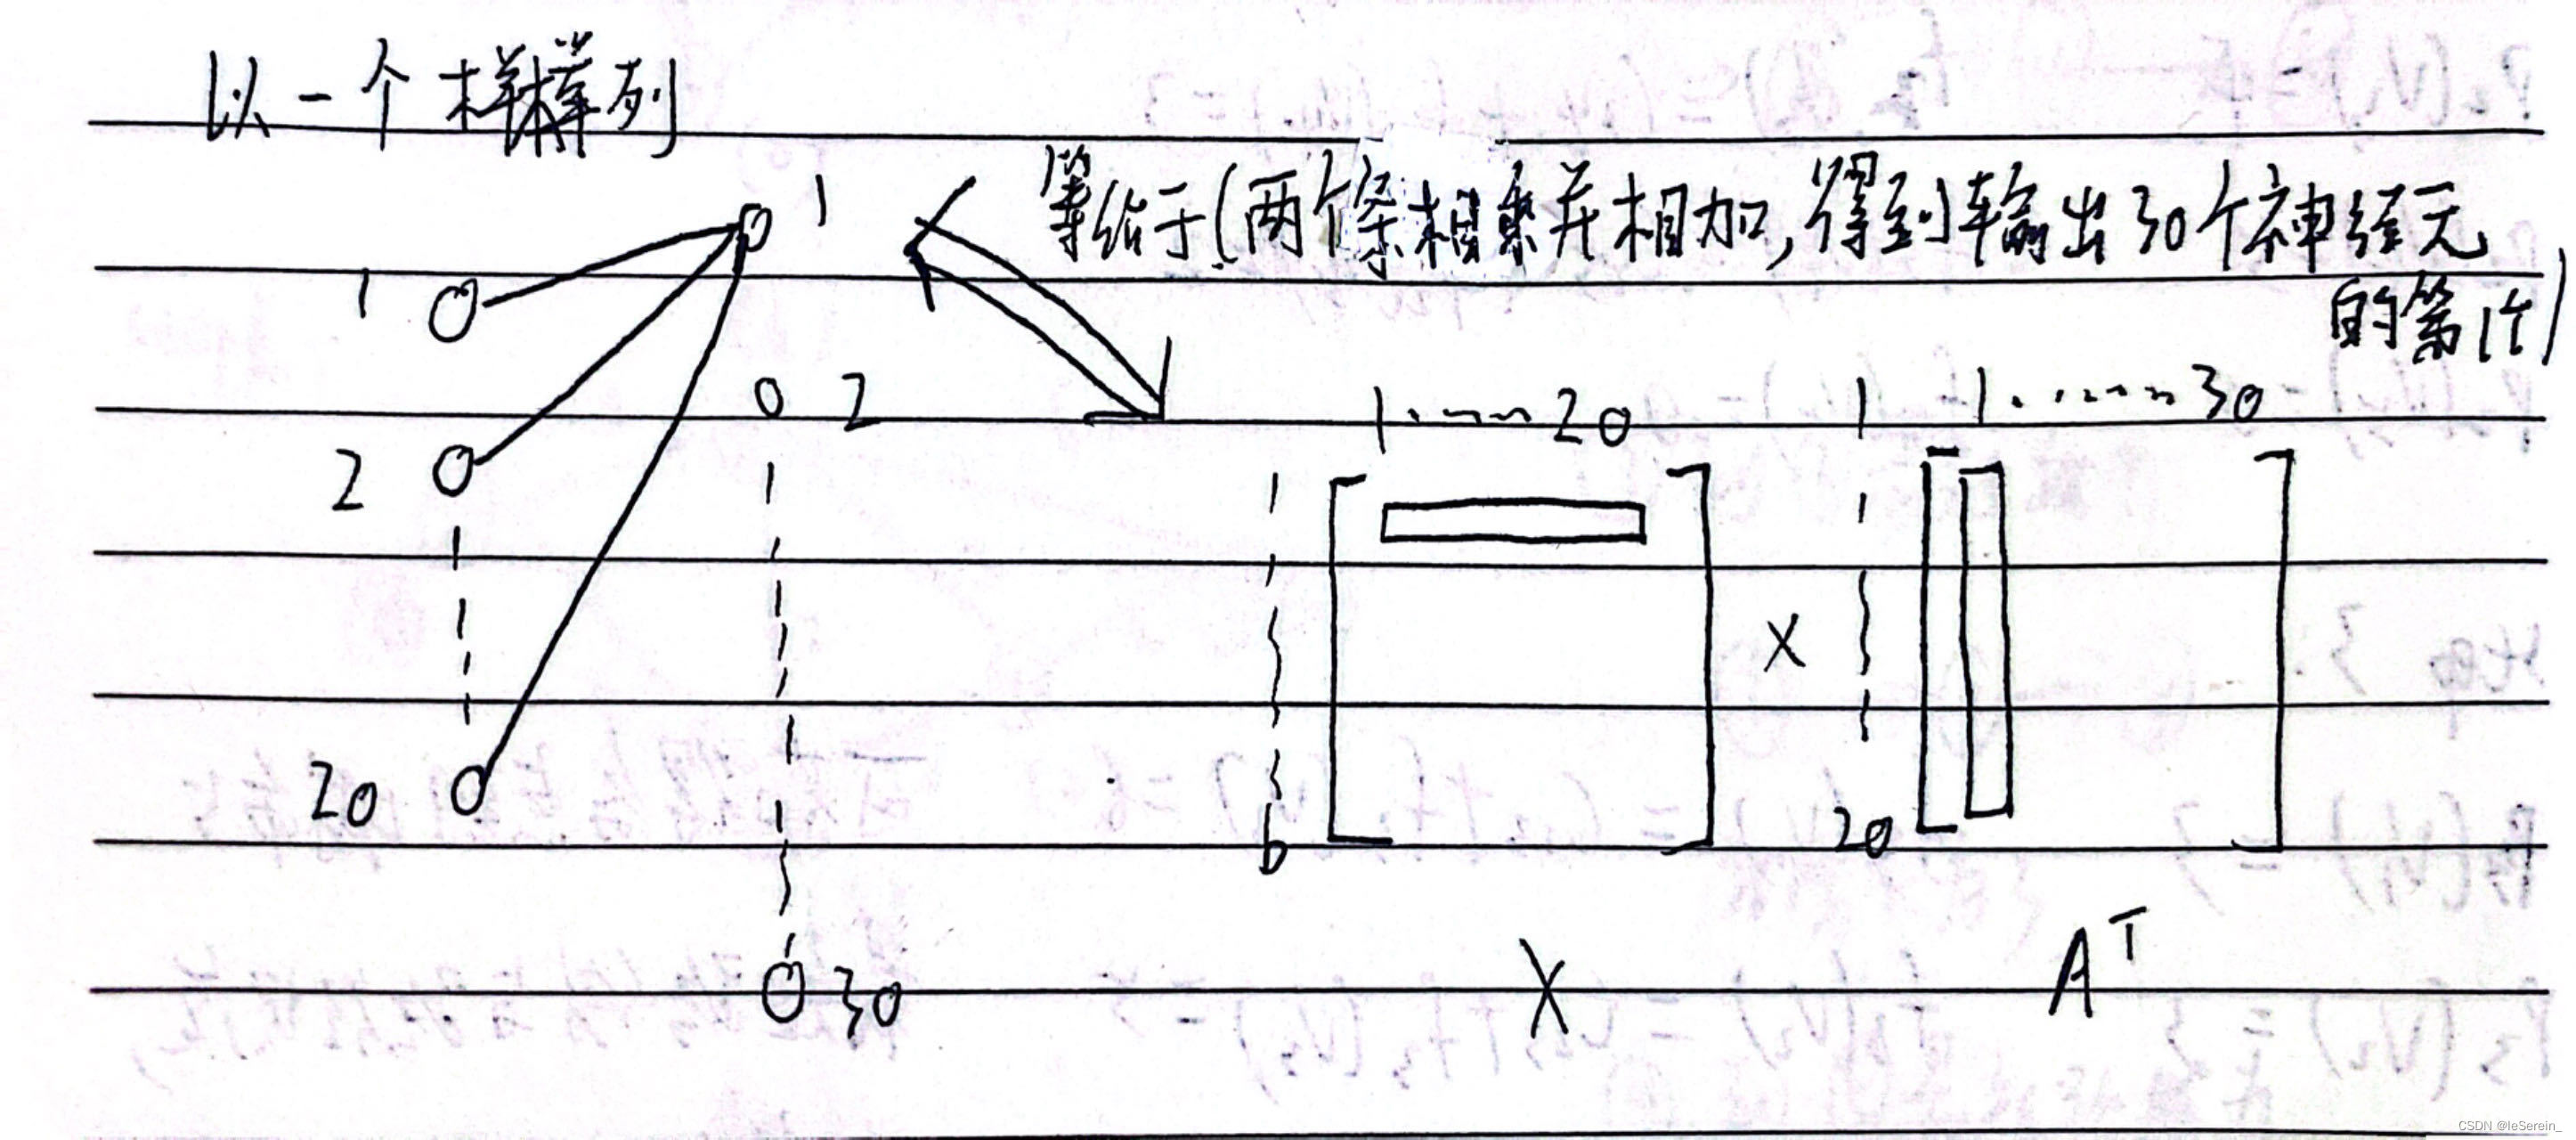 以一个样列
等给于(两个条相乘并相加,得到输出30个神经元
的第1个)
1
1
2
1......20
1
1......30
2
1
1
×
20
b
20
X
A^T
30
CSDN @leSerein_